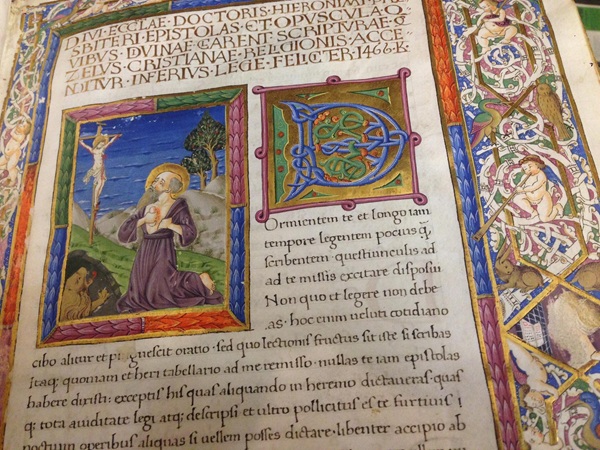 DIVI ECCLAE DOCTORIS HIERONIMI
BITERI EPISTOLAS ET OPUSCULA
VIBUS DVINAE CARENT SCRIPTURAE
ZELUS CRISTIANAE RELIGIONIS ACCE
NDITUR INFERIUS LEGE FELICITER 1466 K
D
Ormientem te et longo iam
tempore legentem pocius q̃
scribentem questiunculis ad
ad te missis excitare disposui
Non quo et legere non debe
as hoc enim veluti cotidiano
cibo alitur et pinguescit oratio sed quo lectionis fructus sit iste si scribas
itaq quoniam et heri tabellario ad me remisso nullas te iam epistolas
habere dixisti exceptis his quas aliquando in heremo dictaveras quas
q tota aviditate legi atq descripsi et ultro pollicitus es te furtivis
noctium operibus aliquas si vellem posses dictare libenter accipio ab